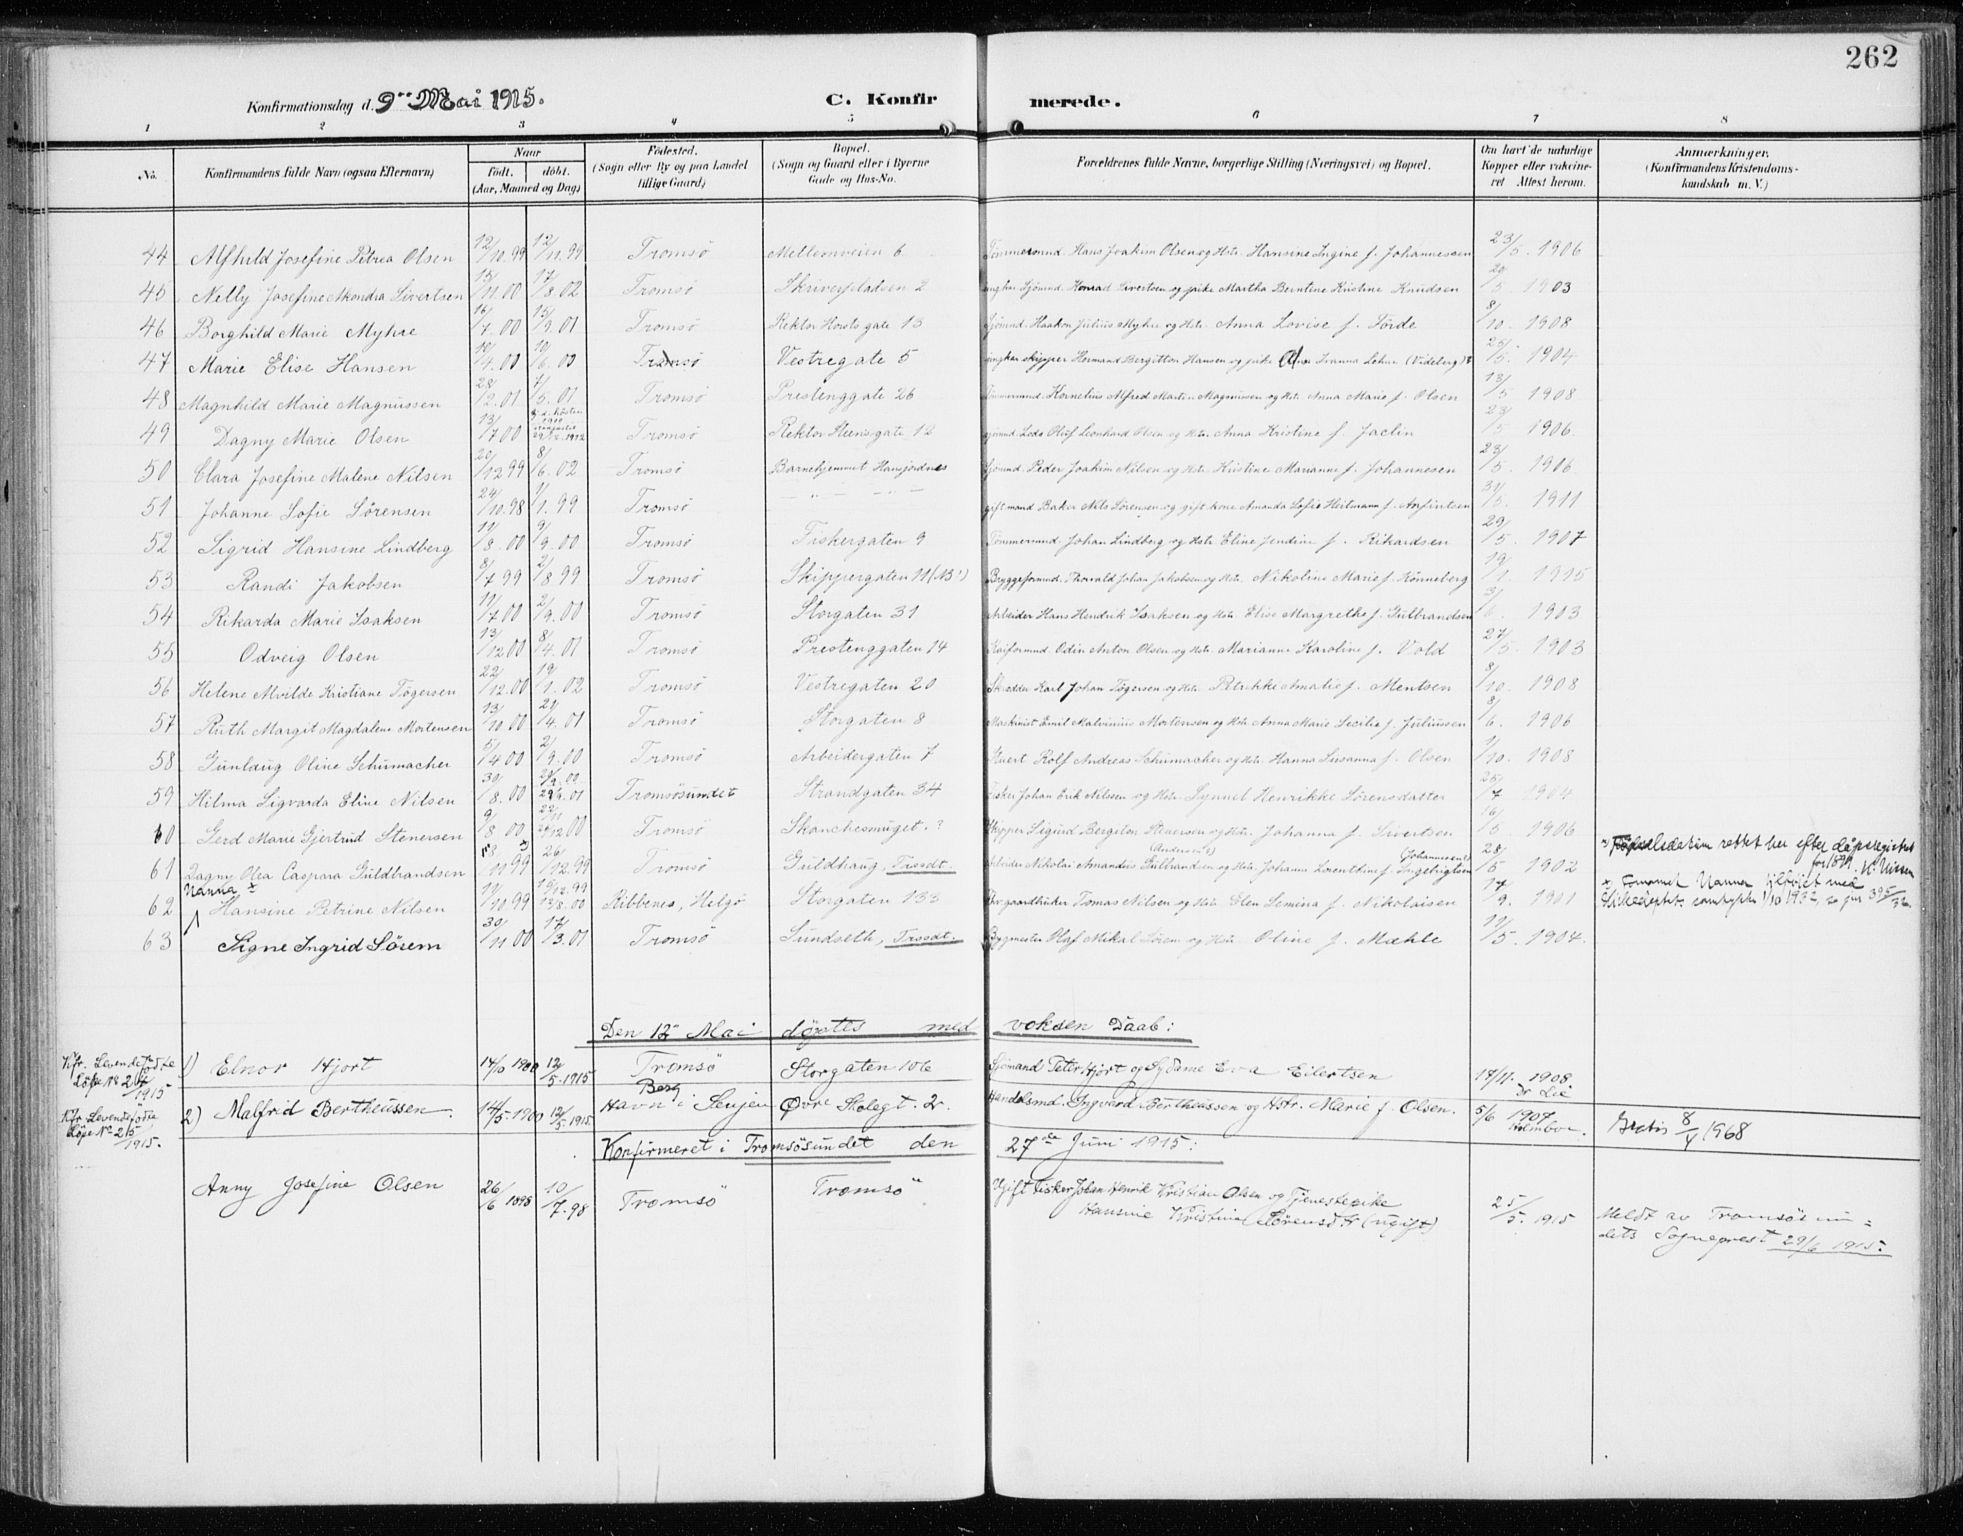 262
Konfirmationsdag d. 9de Mai 1915.
C. Konfirmerede.
1 2 3 4 5 6 7 8
No. Konfirmandens fulde Navn (ogsaa Efternavn) Naar født. døbt. (Aar, Maaned og Dag) Fødested. (Sogn eller By og paa Landet tillige Gaard) Bopæl. (Sogn og Gaard eller i Byerne Gade og Hus-No. Forældrenes fulde Navne, borgerlige Stilling (Næringsvei) og Bopæl. Om havt de naturlige Kopper eller vakcineret Attest herom. Anmærkninger. (Konfirmandens Kristendomskundskab m. V.)
44 Alfhild Josefine Petrea Olsen 12/10.99 12/11.99 Tromsö Mellemveien 6 Tömmermnd. Hans Joakim Olsen og Hstr. Hansine Ingine f. Johannessen 23/5. 1906
45 Nelly Josefine Alkondra Sivertsen 15/11.00 17/8.02 Tromsö Skriverpladsen 2 ungkar Sjömnd. Konrad Sivertsen og pike Martha Berntine Kristine Knudsen 1903
46 Borghild Marie Myhre 16/7.00 15/9.01 Tromsö Rektor Horsts gate 13 Sjömnd. Haakon Julius Myhre og Hstr. Anna Lovise f. Förde 8/10. 1908
47 Marie Elise Hansen 10/4.00 10/6.00 Tromsö Vestregate 5 ungkar skipper Hermand Bergitton Hansen og pike Ivanna Lehn (Videberg) 1904
48 Magnhild Marie Magnussen 28/2.01 7/5.01 Tromsö Prestenggate 26 Tömmermnd. Kornelius Alfred Martin Magnussen og Hstr. Anna Marie f. Olsen 13/5 1908
49 Dagny Marie Olsen 13/7.00 Tromsö Rektor Steens gate 12 Sjömnd. Lods Oluf Leonhard Olsen og Hstr. Anna Kristine f. Jaclin 23/5 1906.
50 Clara Josefine Malene Nilsen 20/12 99 8/6.02 Tromsö Barnehjemmet Hansjordnes Sjömnd. Peder Joakim Nilsen og Hstr. Kristine Marianne f. Johannesen 23/5. 1906
51 Johanne Sofie Sörensen 24/10.98 1/1.99 Tromsö — " — — " — gift mand Baker Nils Sörensen og gift kone Amanda Sofie Heitmann f. Arfintsen 31/5. 1911
52 Sigrid Hansine Lindberg 11/8.00 9/9.00 Tromsö Fiskergaten 9 Tömmermnd. Johan Lindberg og Hstr. Eline Jendine f. Rikardsen 29/5. 1907
53 Randi Jakobsen 8/7 99 2/8 99 Tromsö Skippergaten 11 (13') Bryggeformnd. Thorvald Johan Jakobsen og Hstr. Nikoline Marie f. Könneberg 19/1. 1915
54 Rikarda Marie Isaksen 11/7.00 2/9.00 Tromsö Storgaten 31 Arbeider Hans Hendrik Isaksen og Hstr. Elise Margrethe f. Gulbrandsen 3/6. 1903
55 Odveig Olsen 13/12.00 8/4.01 Tromsö Prestenggaten 14 Kaiformnd. Odin Anton Olsen og Hstr. Marianne Karoline f. Vold 27/5. 1903
56 Helene Alvilde Kristiane Tögersen 22/12.00 19/1.02 Tromsö Vestregaten 20 Skredder Karl Johan Tögersen og Hstr. Petrikke Amalie f. Mentsen 8/10. 1908
57 Ruth Margit Magdalene Mortensen 13/10 00 21/4.01 Tromsö Storgaten 8 Maskinist Emil Malvinius Mortensen og Hstr. Anna Marie Secilie f. Juliussen 8/6. 1906
58 Gunlaug Oline Schumacher 5/4 00 2/9.00 Tromsö Arbeidergaten 7 Rolf Andreas Schumacher og Hstr. Hanna Susanna f. Olsen 1/10. 1908
59 Hilma Sigvarda Eline Nilsen 30/8.00 Tromsösundet Strandgaten 34 Fisker Johan Erik Nilssen og Hstr. Synnel Henrikke Sörensdatter 25/7 1904
60 Gerd Marie Gjertrud Stenersen 9/8 00 Tromsö Skanchesmuget. ? Skipper Sigurd Bergiton Stenersen og Hstr. Johanna f. Sivertsen 16/5. 1906
61 Dagny Olea Caspara Guldbrandsen 18/11 99 26/12.99 Tromsö Guldhaug, Trssdt. Arbeider Nikolai Amandus Gulbrandsen (Andersen) og Hstr. Johanna Lorentine f. Ingebrigtsen (Johannesen) 28/5 1902 Födselsdatum rettet her efter dåpsregistret for 1899. K. Nissen
62 Nanna × Hansine Petrine Nilsen 11/10 99 Ribbenes, Helgö Storgaten 133 Gaardbruker Tomas Nilsen og Hstr. Elen Semina f. Nikolaisen 17/9. 1901 × Fornavnet Nanna tilföiet med
63 Signe Ingrid Sörem 30/11 00 17/3.01 Tromsö Sundseth, Trssdt. Bygmester Olaf Mikal Sörem og Hstr. Oline f. Mæhle 19/5. 1904.
Den 12te Mai döptes med voksen Daab:
Kfr. Levendefödte Löpe No 24/1915 1) Elnor Hjort 14/10 1900 12/5.1915 Tromsö Storgaten 106 Sjömand Peter Hjort og Sydame Eva Eilertsen 17/11. 1908 Dr Lie
Kfr. Levendefödte Löpe No 25/1915. 2) Malfrid Bertheussen. 14/5.1900 12/5.1915. Berg Havn i Senjen Øvre Skolegt. 2. Handelsmd. Ingvard Bertheussen og Hstr. Marie f. Olsen. 5/6 1907 Holmboe. Gratis 8/4 1968
Konfirmeret i Tromsösundet den 27de Juni 1915:
Anny Josefine Olsen 26/6 1898 10/7.98 Tromsö Tromsö Ugift Fisker Johan Henrik Kristian Olsen og Tjenestepike Hansine Kristine Sörensdtr (ugift) 25/5. 1915 Meldt av Tromsösundets Sogneprest 29/6 1915.